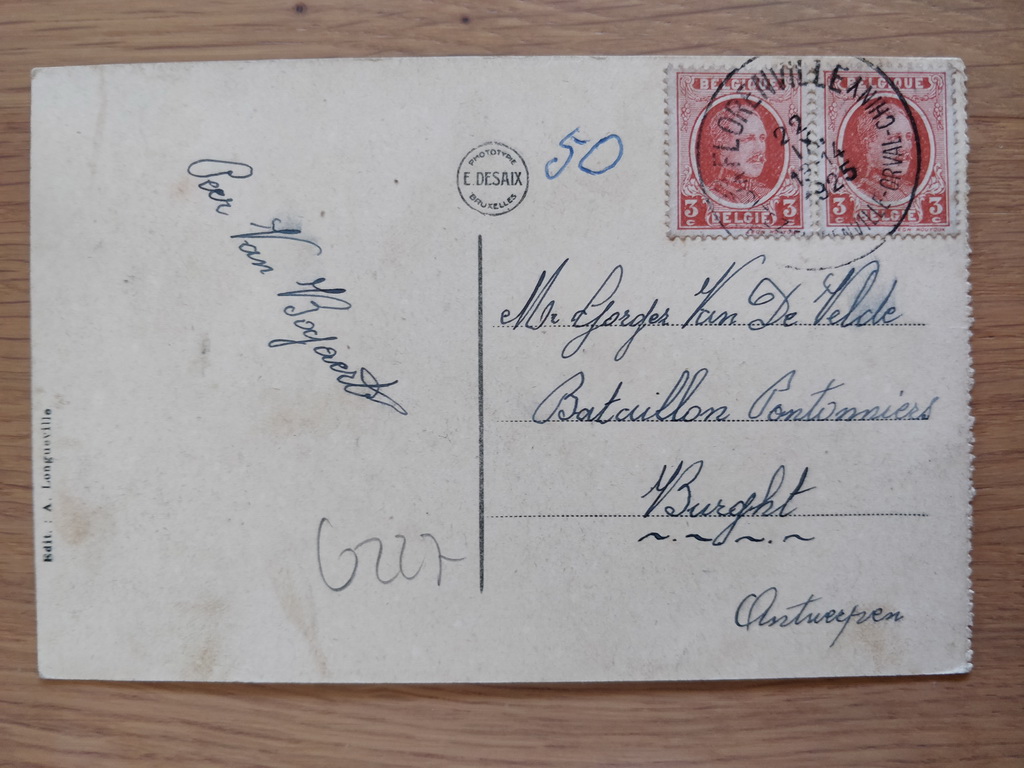 Peer Van Bogaert
PHOTOTYPIE
E. DESAIX
BRUXELLES
50
BELGIQUE
3 c BELGIE 3 c
BELGIQUE
3 c BELGIE 3 c
FLORENVILLE
22
14
1925
FLORENVILLE-ORVAL-CHINY
Mr Gorges Van De Velde
Bataillon Pontonniers
Burght
Antwerpen
Edit. : A. Longueville
6227